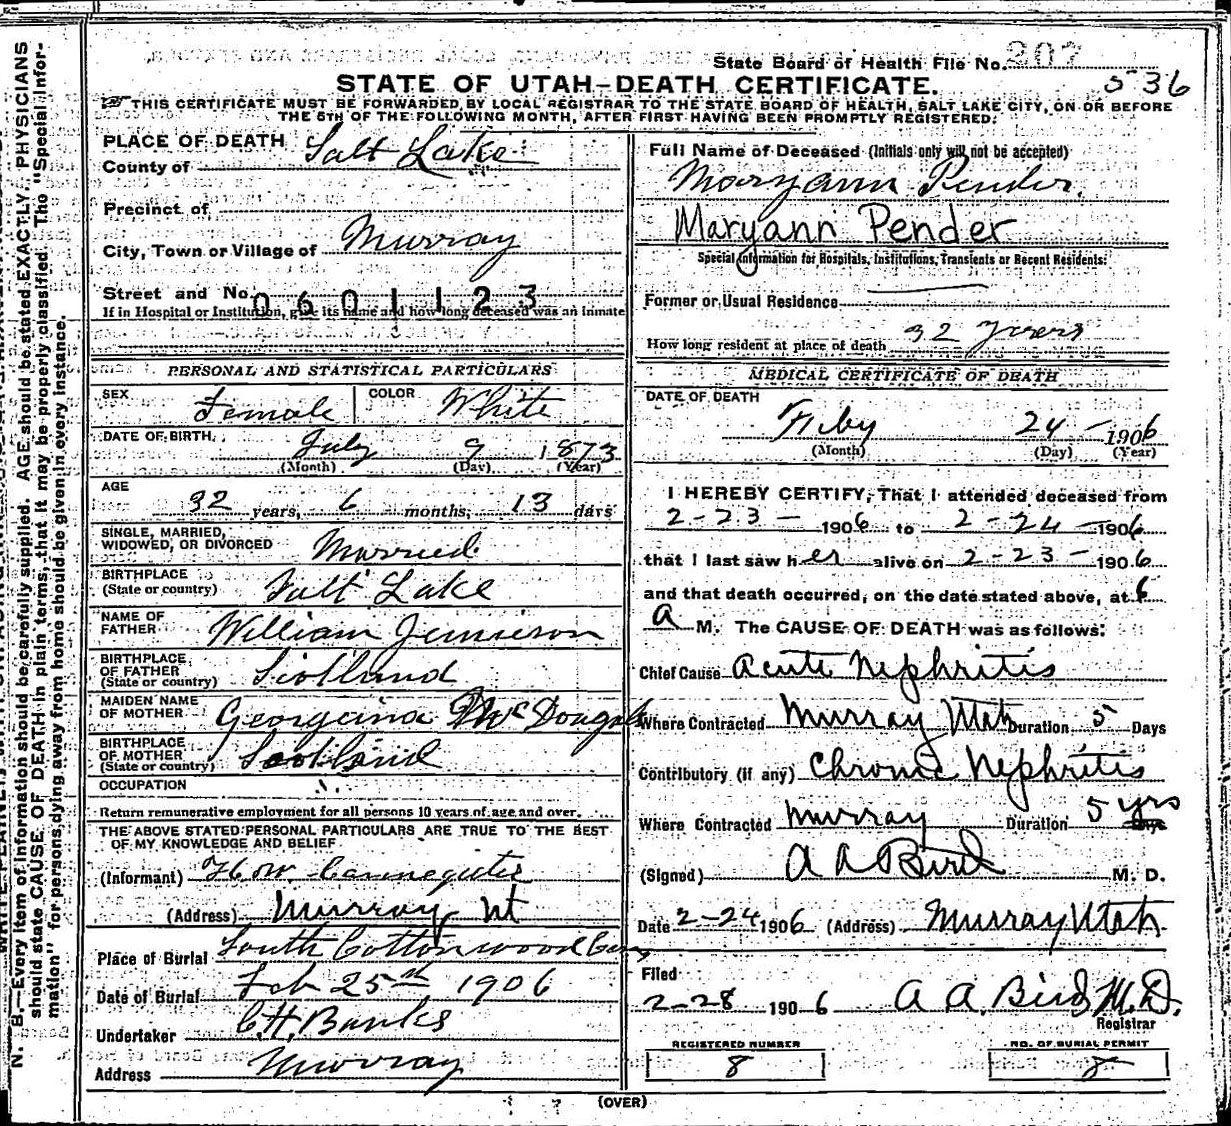 State Board of Health File No. 207
536
STATE OF UTAH—DEATH CERTIFICATE.
THIS CERTIFICATE MUST BE FORWARDED BY LOCAL REGISTRAR TO THE STATE BOARD OF HEALTH, SALT LAKE CITY, ON OR BEFORE
THE 5TH OF THE FOLLOWING MONTH, AFTER FIRST HAVING BEEN PROMPTLY REGISTERED:
N. B.—Every item of information should be carefully supplied. AGE should be stated EXACTLY. PHYSICIANS
should state CAUSE OF DEATH in plain terms, that it may be properly classified. The "Special Infor-
mation" for persons dying away from home should be given in every instance.
PLACE OF DEATH
County of Salt Lake
Precinct of
City, Town or Village of Murray
Street and No. 0601123
If in Hospital or Institution, give its name and how long deceased was an inmate
PERSONAL AND STATISTICAL PARTICULARS
SEX Female COLOR White
DATE OF BIRTH July 9 1873
(Month) (Day) (Year)
AGE
32 years, 6 months, 13 days
SINGLE, MARRIED,
WIDOWED, OR DIVORCED Married
BIRTHPLACE
(State or country) Salt Lake
NAME OF
FATHER William Jemieson
BIRTHPLACE
OF FATHER
(State or country) Scotland
MAIDEN NAME
OF MOTHER Georgeina McDougall
BIRTHPLACE
OF MOTHER
(State or country) Scotland
OCCUPATION
Return remunerative employment for all persons 10 years of age and over.
THE ABOVE STATED PERSONAL PARTICULARS ARE TRUE TO THE BEST
OF MY KNOWLEDGE AND BELIEF
(Informant)
(Address) Murray Ut
Place of Burial South Cottonwood Cem
Date of Burial Feb 25th 1906
Undertaker C.H. Banks
Address Murray
Full Name of Deceased (Initials only will not be accepted)
Maryann Pender.
Maryann Pender
Special Information for Hospitals, Institutions, Transients or Recent Residents:
Former or Usual Residence
How long resident at place of death 32 Years
MEDICAL CERTIFICATE OF DEATH
DATE OF DEATH
Feby 24 1906
(Month) (Day) (Year)
I HEREBY CERTIFY, That I attended deceased from
2-23- 1906 to 2-24-1906
that I last saw her alive on 2-23-1906
and that death occurred, on the date stated above, at 6
A M. The CAUSE OF DEATH was as follows:
Chief Cause Acute Nephritis
Where Contracted Murray Utah Duration 5 Days
Contributory (if any) Chronic Nephritis
Where Contracted Murray Duration 5 yrs Days
(Signed) A A Bird M. D.
Date 2-24 1906 (Address) Murray Utah
Filed
2-28 1906 A A. Bird M.D.
Registrar
REGISTERED NUMBER
8
NO. OF BURIAL PERMIT
8
(OVER)